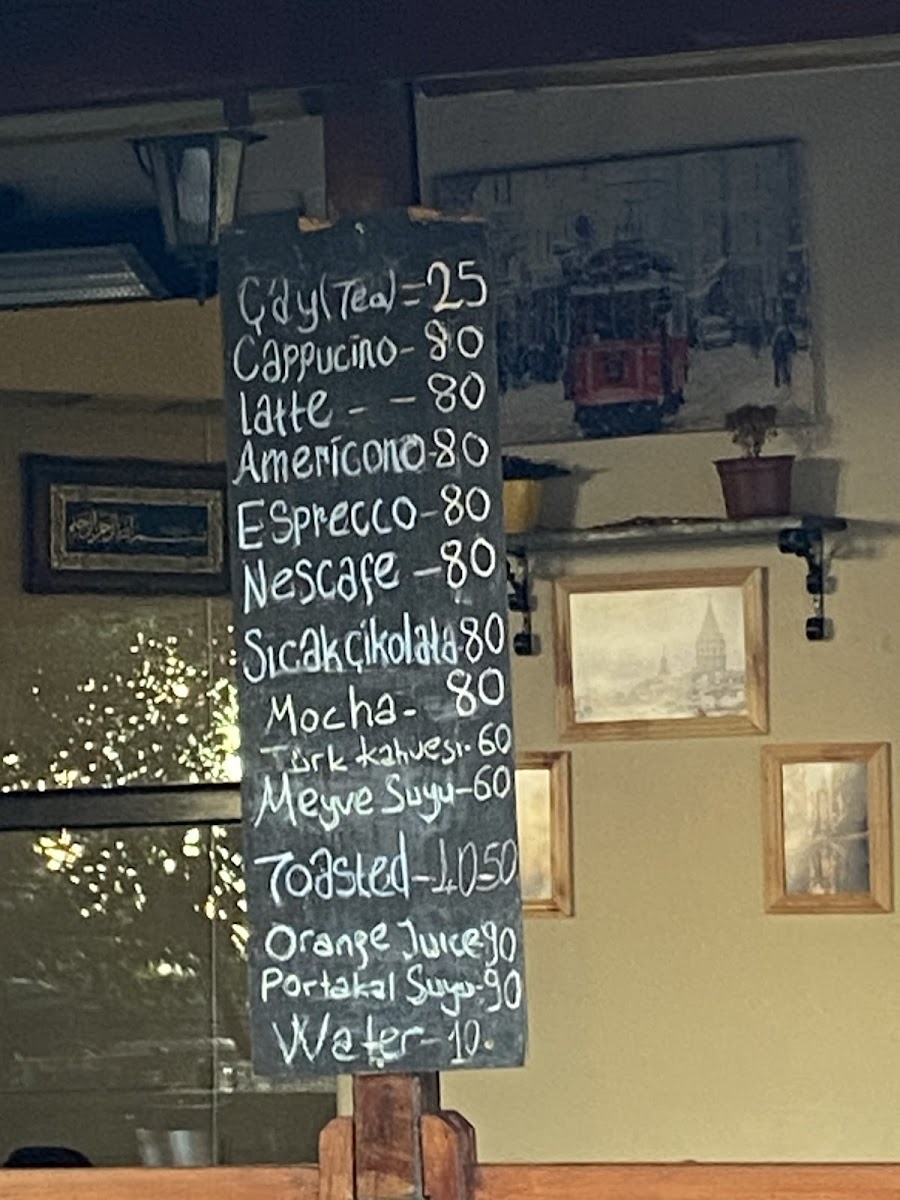 Çay(Tea)=25
Cappucino-80
latte - - 80
Americono-80
Esprecco-80
Nescafe -80
Sıcak çikolata 80
Mocha- 80
Türk kahvesi-60
Meyve Suyu-60
Toasted-
Orange Juice 90
Portakal Suyu-90
Water-10.